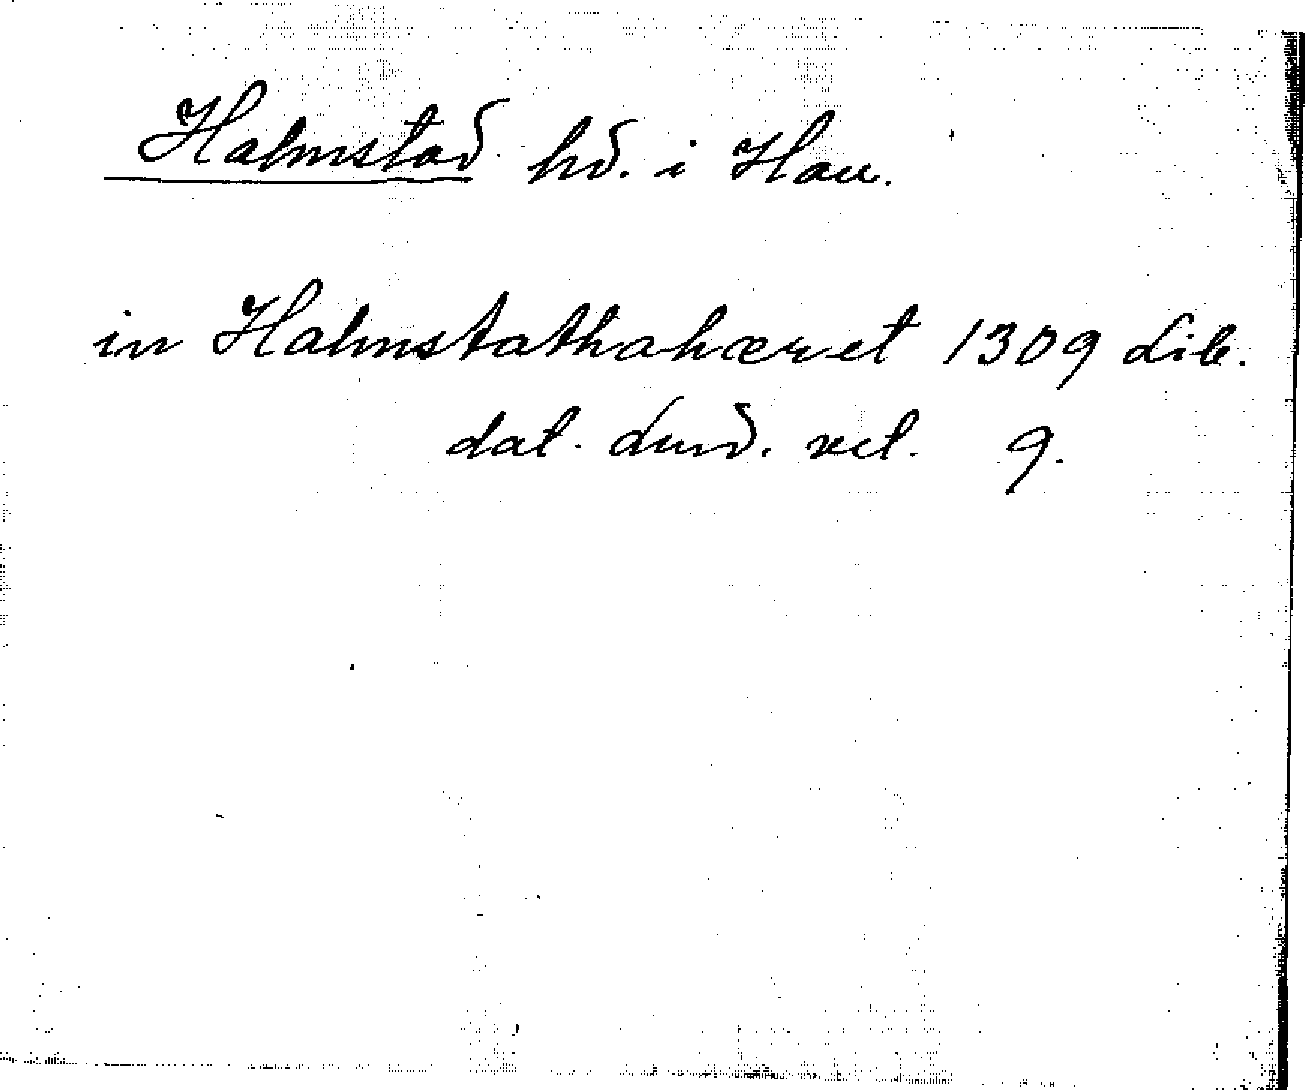 Halmstad hd. i Hall.
in Halmstathahæret 1309 Lib.
dat. Lund. vet. 9.